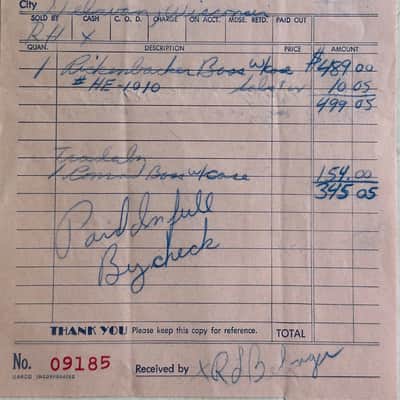 City Delavan, Wisconsin
SOLD BY CASH C. O. D. CHARGE ON ACCT. MDSE. RETD. PAID OUT
RH X
QUAN. DESCRIPTION PRICE AMOUNT
1 Rickenbacker Bass w/case $489.00
#HE-1010 10 05
499 05
Trade In
Bass w/case 154.00
345 05
Paid In full
By check
THANK YOU Please keep this copy for reference. TOTAL
No. 09185 Received by X R L